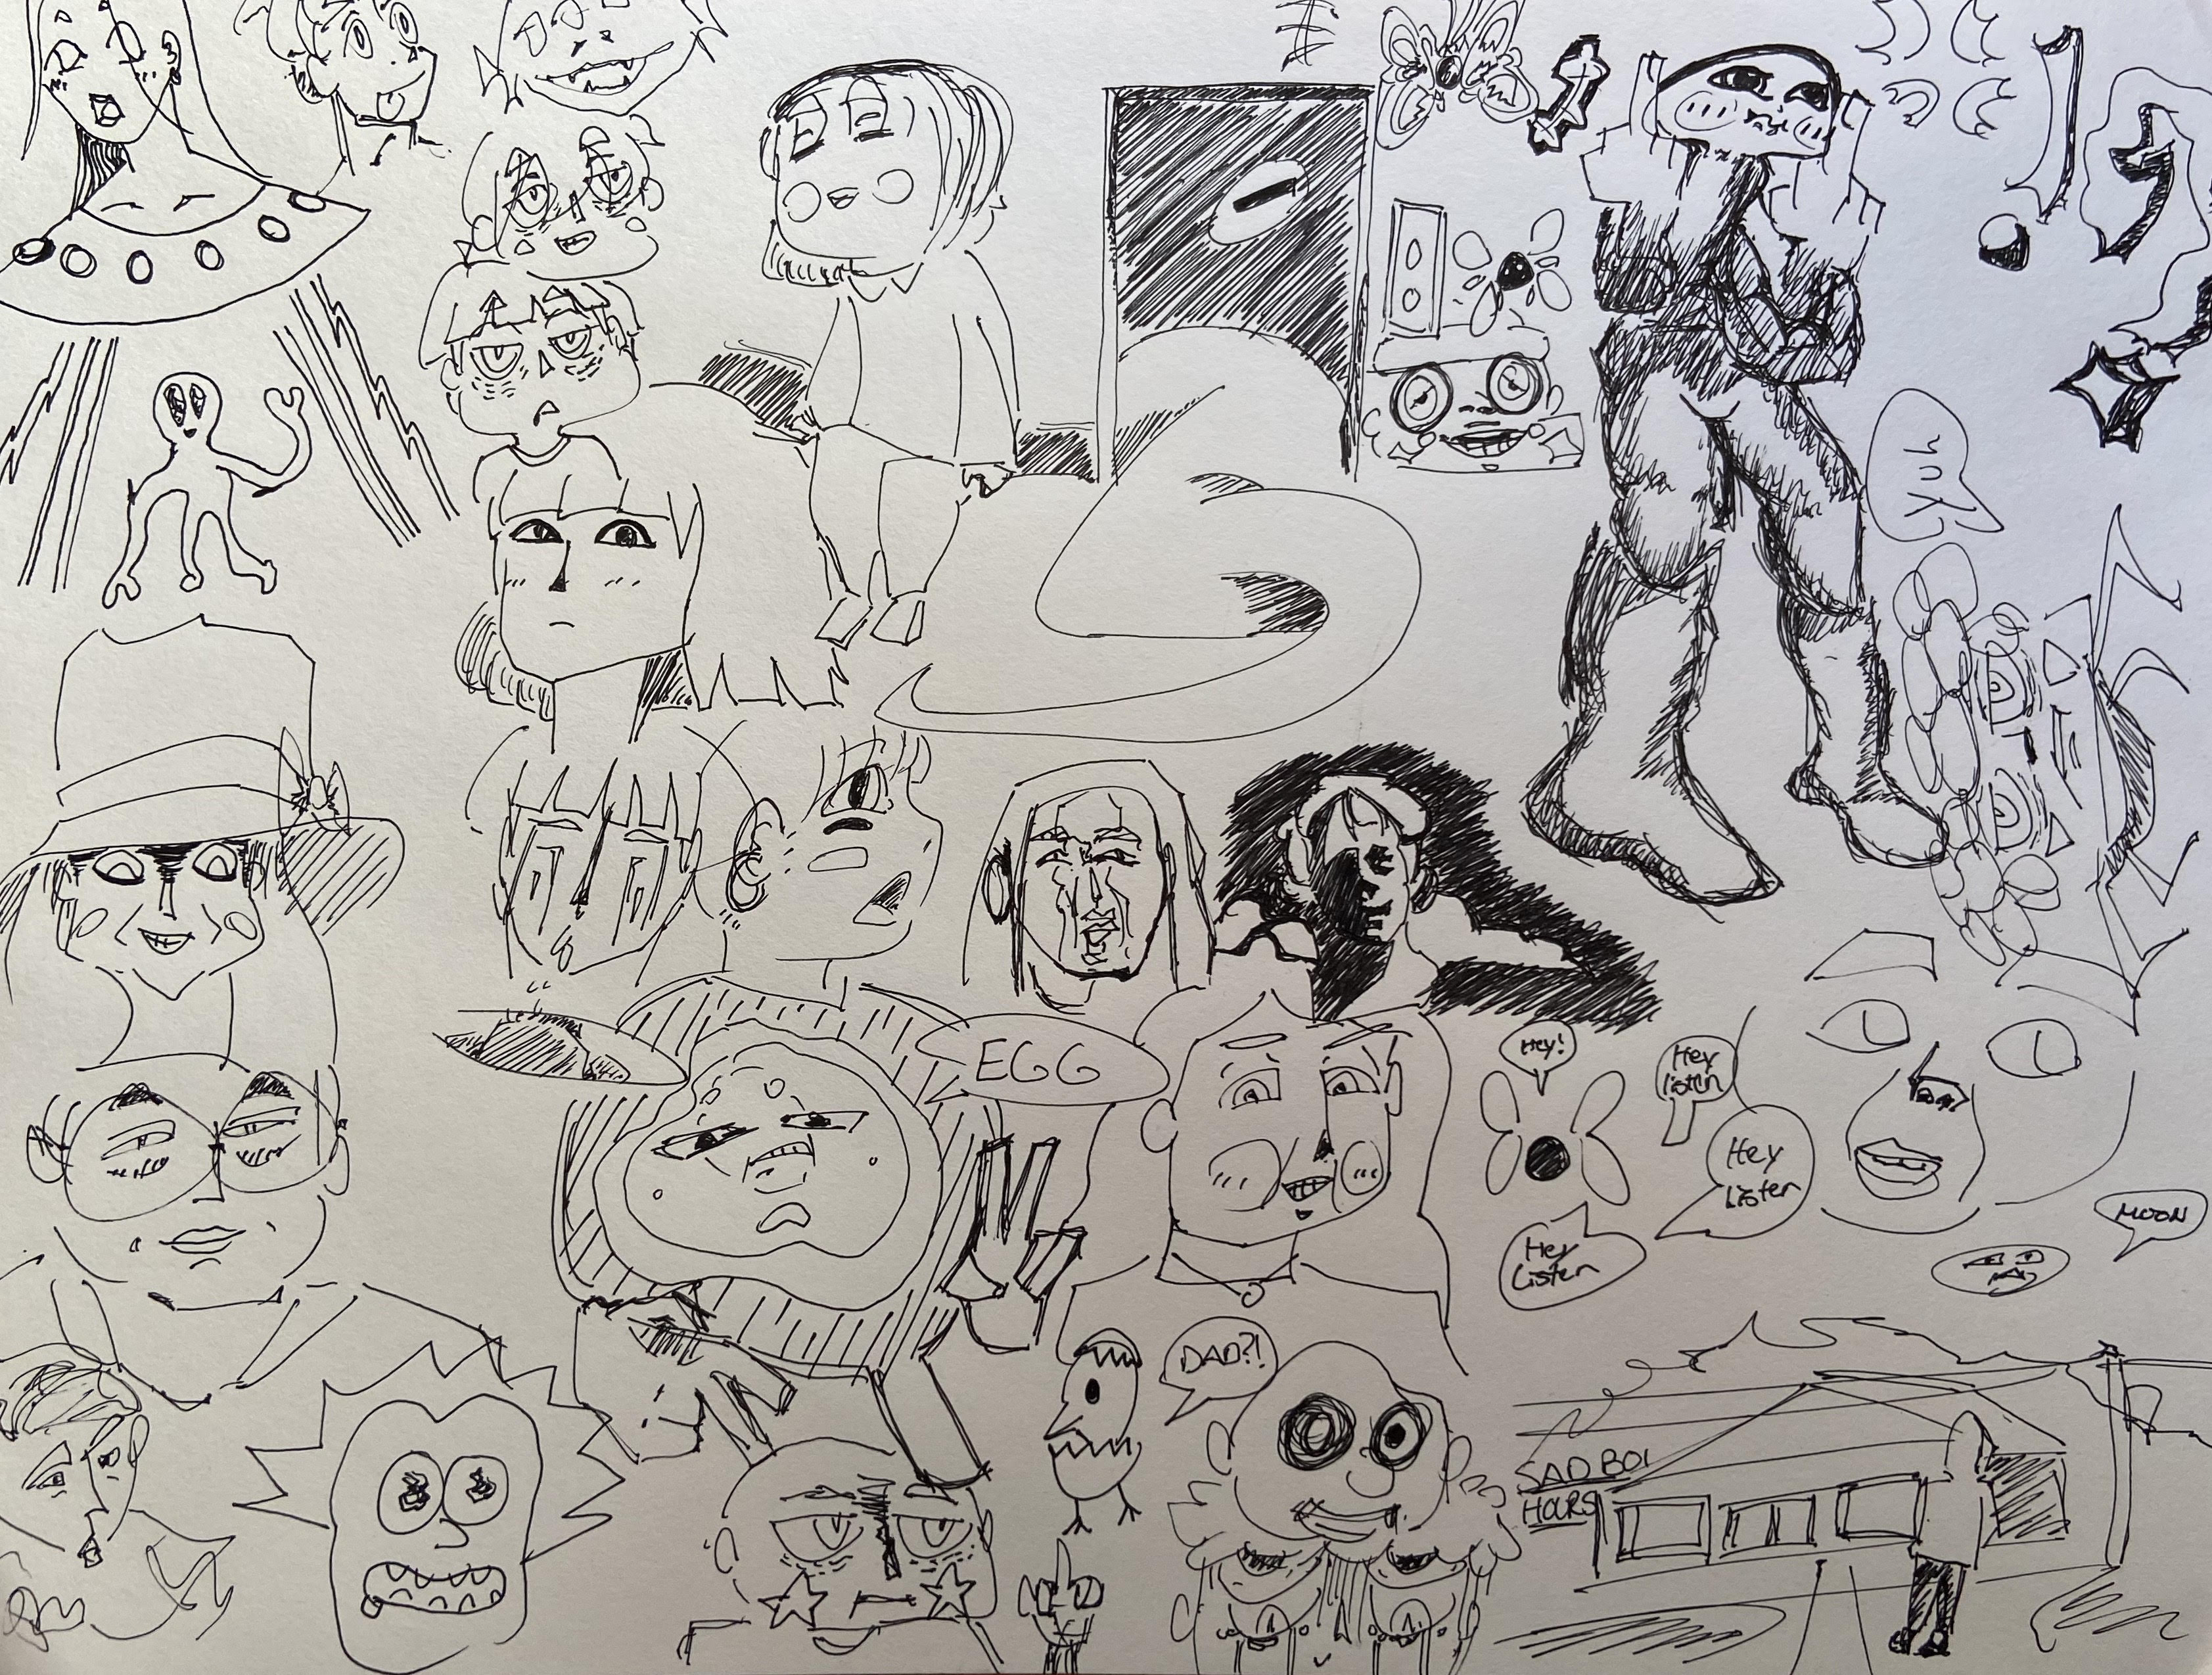 EGG
Hey!
Hey
listen
Hey
Listen
Hey
Listen
MOON
DAD?!
SAD BOI
HOURS